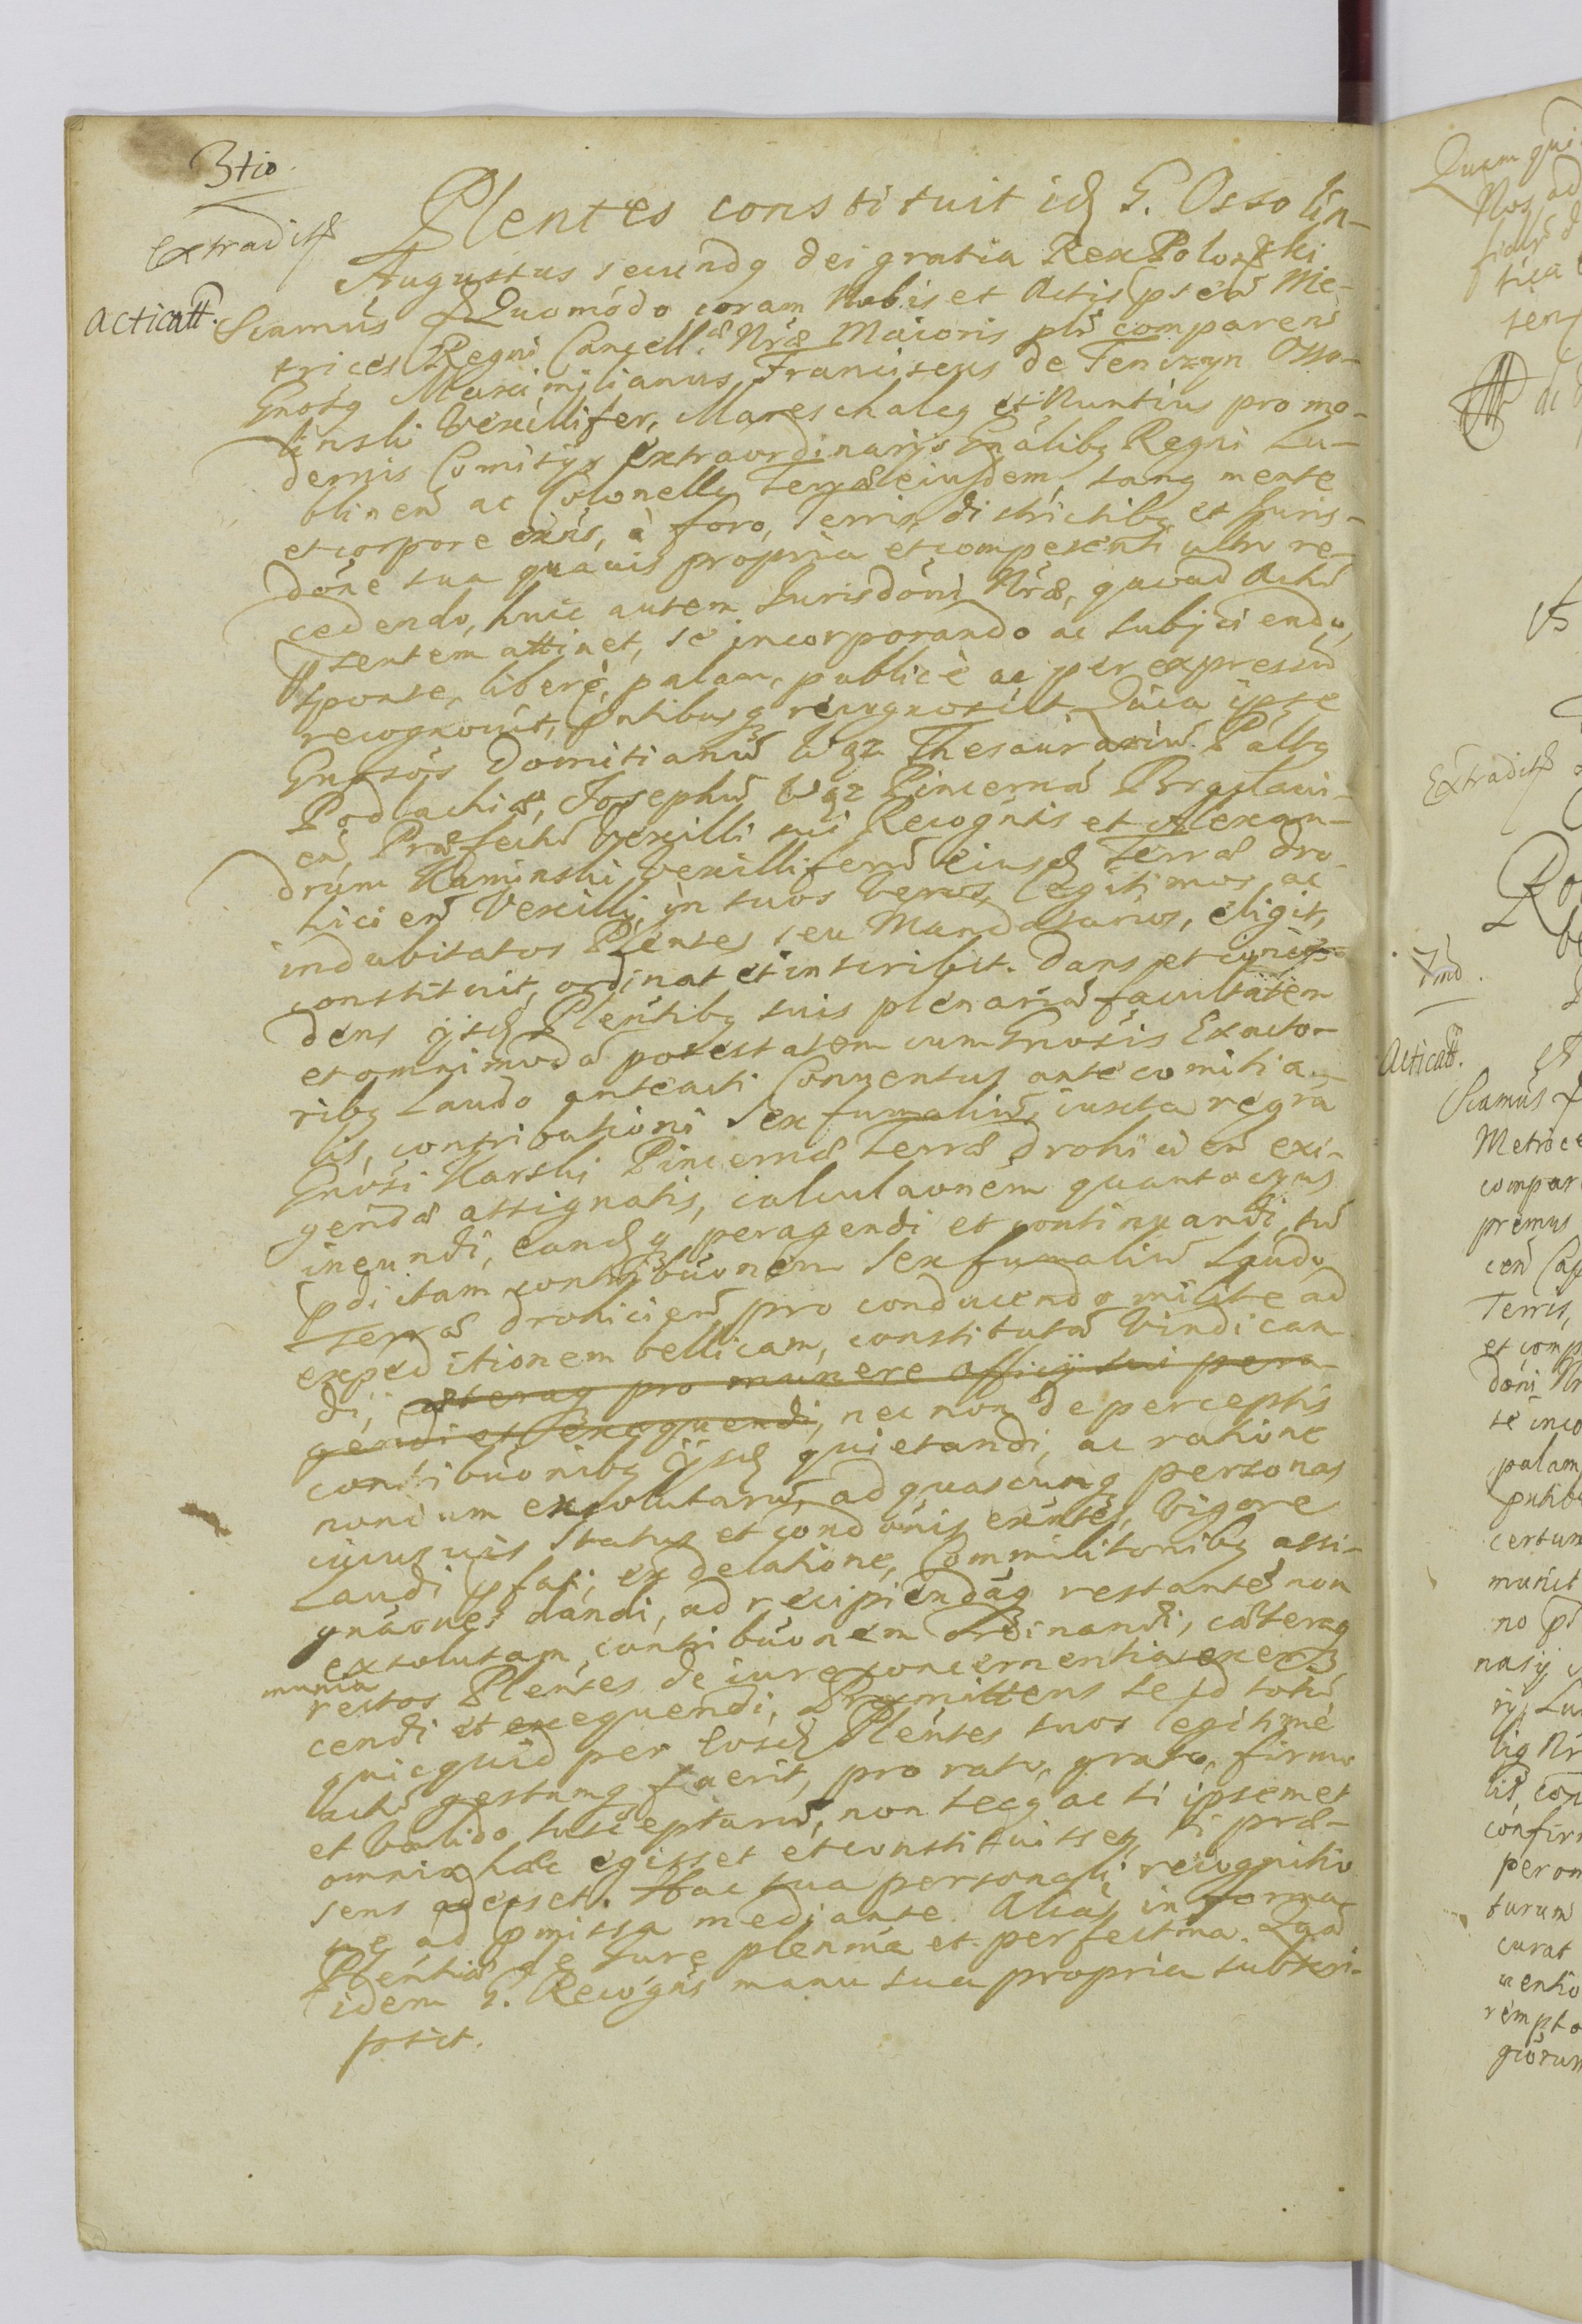 3tio
Extradit
Plentes constituit id G. Ossolin-
ski
Augustus secundq Dei gratia Rex Polo
acticatt.
Scamus Quomodo coram Nobis et Actis pseñ Me-
trices Regni Cancell. Nræ Maioris plr comparens
Gnosq Maximilianus Franciscus de Tenczyn Osso-
linski Vexillifer, Mareschalcq et Nuntius pro mo-
dernis Comitijs Extraordinarijs Gnalibq Regni Lu-
blineñ ac Colonellq Terræ eiusdem, sanq mente
et corpore exñs, à foro, Terris, districtibq et Juris-
dóne sua quavis propria et competenti ultro re-
cedendo, huic autem Jurisdóni Nræ, quoad Actũ
psentem attinet, se incorporando ac subijciendo,
sponte, liberè, palam, publicè ac per expressũ
recognovit, pntibusq recognoscit. Quia ipse
Gnosos Domitianũ Thesaurariũ Paltq
Podlachiæ, Josephũ Pincernã Braclavi-
eñ Præfectũ Vexilli sui Recogñtis et Alexan-
drum Kaminski Vexilliferũ eiusd Terræ Dro-
hicieñ Vexilli, in suos veros, legitimos, ac
indubitatos Plentes seu Mandatarios, eligit,
constituit, ordinat et inscribit. Dans et conce-
dens ijsd Plentibq suis plenariã facultatem
et omnimodã potestatem cum Gnosis Exacto-
ribq Laudo anteacti Conventus antecomitia-
lis, contributioni Sex fumaliũ, iuxta regra
Gnosi Karski Pincernæ Terræ Drohicieñ exi-
gendæ assignatis, calculaonem quantocyus
ineundi, eandq peragendi et continuandi, tũ
pdictam contribuonem Sex fumaliũ Laudo
Terræ Drohicieñ pro conducendo milite ad
expeditionem bellicam, constitutã Vindican-
di, cæteraq pro munere officij sui pera-
gendi et exequendi, nec non de perceptis
contribuonibq ijsd quietandi, ac ratione
nondum exsolutarũ, ad quascunq personas
cuiusvis Status et condónis exñtes, vigore
Laudi pfati, ex delatione, Commilitonibq assi-
gnaones dandi, ad recipiendaq restantẽ non
exsolutam contribuonem ordinandi, cæteraq
munia
rectos Plentes de iure concernentia exer-
cendi et exequendi, Promittens se id totũ
quicquid per eosd Plentes suos legitimè
actũ gestumq fuerit, pro rato, grato, firmo
et valido suscepturũ, non secq ac si ipsemet
omnia hæc egisset et constituisset, si præ-
sens adesset. Hac sua personali recognitio-
ne ad pmissa mediante. Alias in forma
Plentiæ de Jure plenma et perfectma. Qua
idem G. Recogñs manu sua propria subscri-
psit.
Quam
Nos ad
tica
Extradit
7mo.
Acticatt.
Scamus
Metrice
compar
premus
Terris,
et comp
doni Nr
se inco
palam
pntib
certum
no
confir
turum
curat